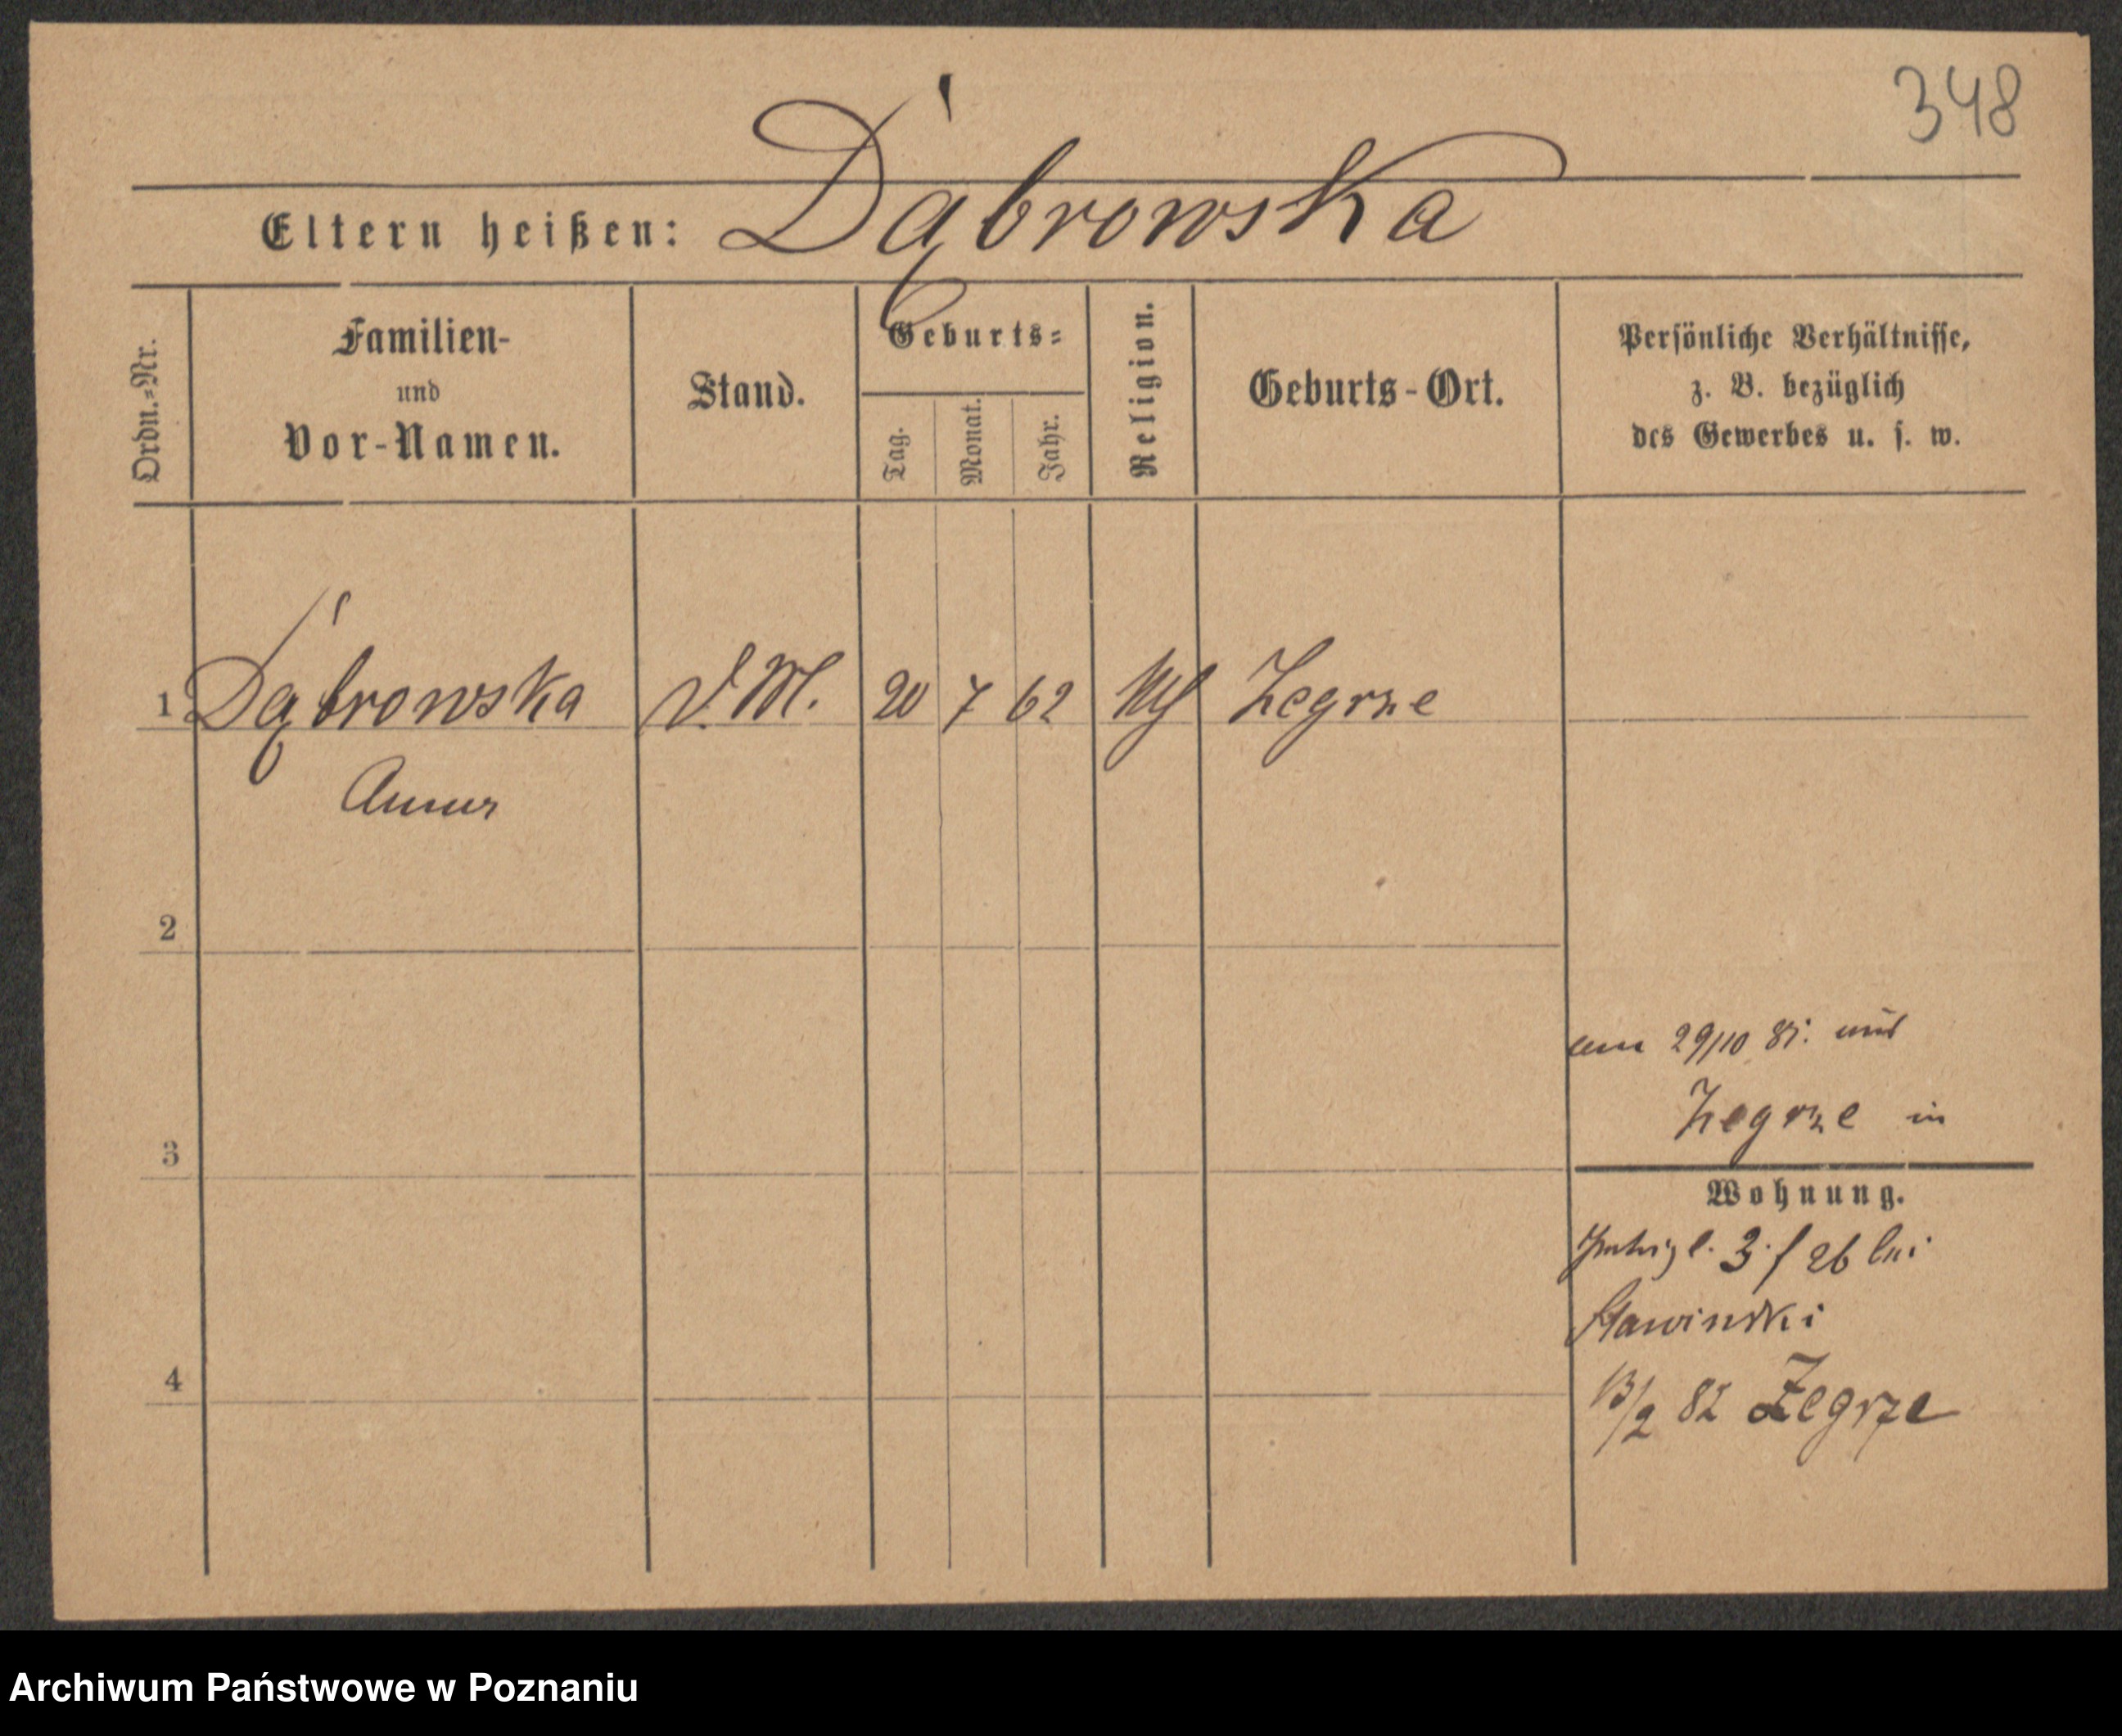 348
Eltern heißen: Dąbrowska
Ordn.=Nr.
Familien-
und
Vor-Namen.
Stand.
Geburts=
Tag.
Monat.
Jahr.
Religion.
Geburts-Ort.
Persönliche Verhältnisse,
z. B. bezüglich
des Gewerbes u. s. w.
1 Dąbrowska D. M. 20 7 62 Zegrze
Anna
2
am 29/10 81. aus
Zegrze in
3
Wohnung.
3. f 26 bei
Slawinski
4
13/2 82 Zegrze
Archiwum Państwowe w Poznaniu